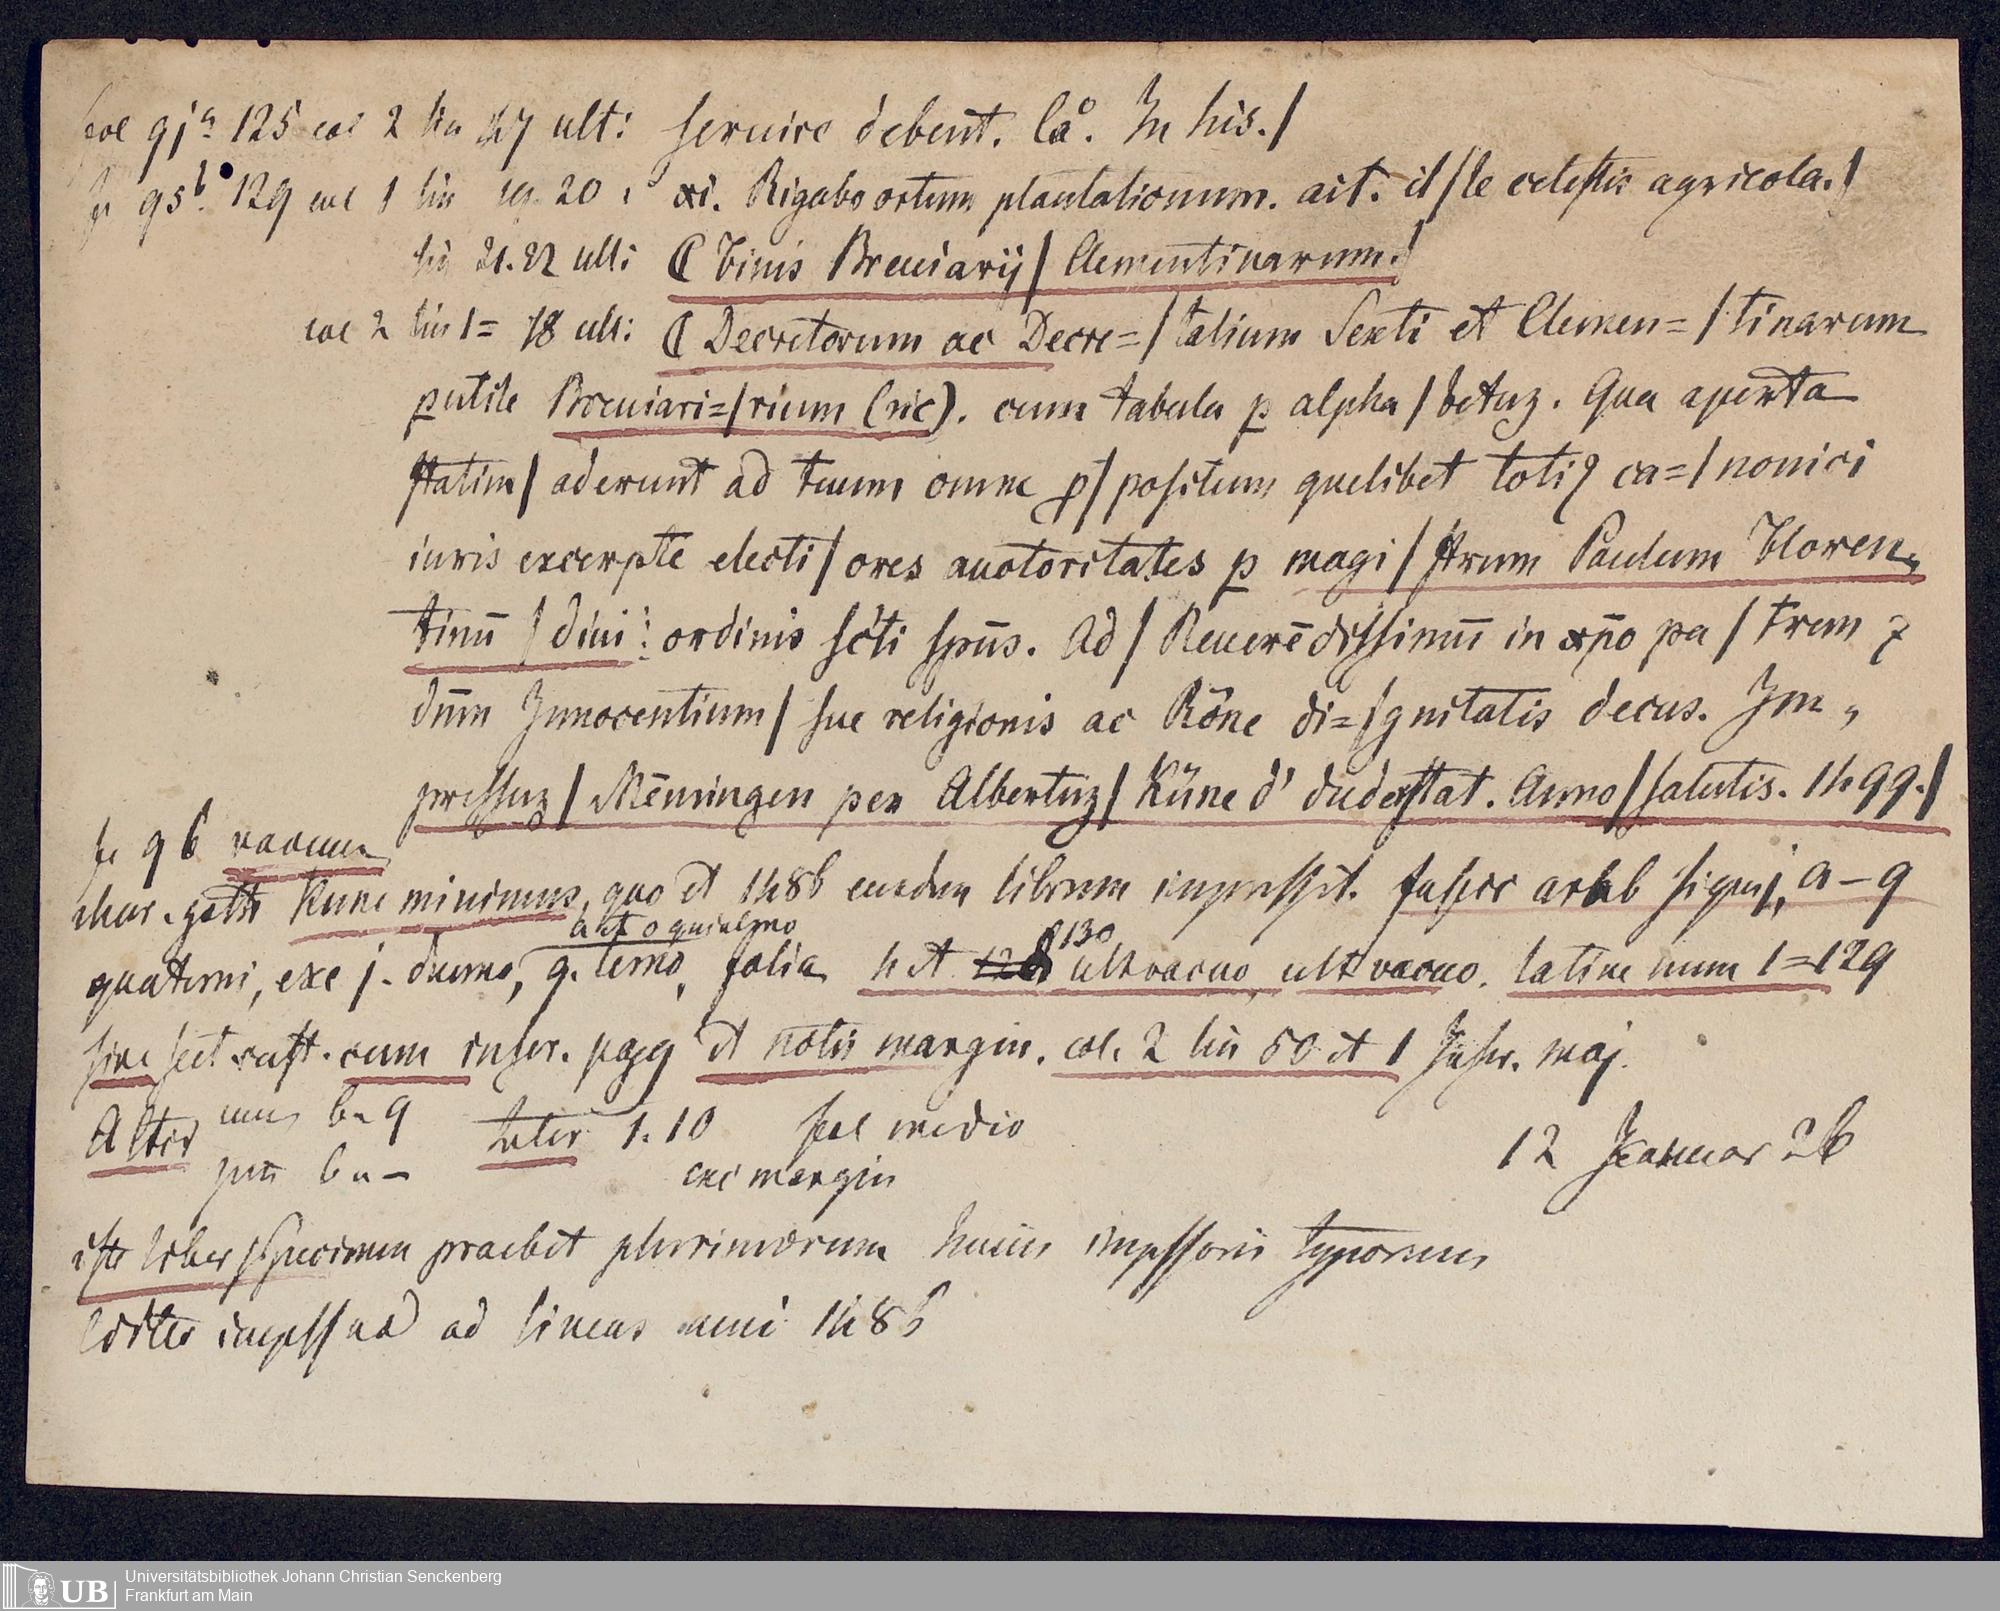 fol qja 125 col 2 lin 47 ult: seruire debent. la°. In his./
fo q5b. 129 col 1 lin 19. 20 : xi. Rigabo ortum plantationum. ait. il/le celestis agricola./
lin 21. 22 ult: ₵ Finis Breuiarij / Clementinarum./
col 2 lin 1= 18 ult: ₵ Decretorum ac Decre=/talium Sexti et Clemen=/tinarum
putile Breuiari=/rium (sic). cum tabula p alpha/betuz. Qua aperta
statim/ aderunt ad tuum omne p/positum quelibet toti9 ca=/nonici
iuris excerpte electi/ores auctoritates p magi/strum Paulum Floren,
tinū / diui: ordinis scti spūs. Ad / Reuerēdissimū in xp̄o pa/trem 7
dn̄m Innocentium/ sue religionis ac Rōne di=/gnitatis decus. Im,
pressuz/ Mēmingen per Albertuz/ Küne d' duderstat. Anno/salutis. 1499./
fo q6 vacuum
char. goth Kune minimus, quo et 1486 eundem librum impressit. Inscr arab sign j, a-q
a et o quinterno
quaterni, exc j. duerno, q. terno, folia 4 et 128 130 ult vacuo, ult vacuo. latine num 1=129
sine sect. cust. cum inscr. pagg et notis margin. col. 2 lin 50 et 1 Inscr. maj.
Alter nus b- q Inter 1. 10 fol medio
12 Januar 26
pun b u - exc margin
iste liber specimen praebet plurimorum huius impssoris typorum
Editio impssa ad lineas anni 1486
UB Universitätsbibliothek Johann Christian Senckenberg
Frankfurt am Main